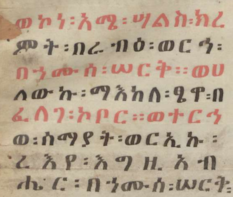 ወኮነ፡አሜ፡ሣልስ፡ክረ
ምት፡በራብዕ፡ወርኅ፡
በኀሙሰ፡ሠርቅ፡፡ወሀ
ለውኩ፡ማእከለ፡ፄዋ፡በ
ፈለገ፡ኮቦር፡፡ወተርኅ
ወ፡ሰማያት፡ወርኢኩ፡
ረእየ፡እግዚአብ
ሔር፡በኀሙሰ፡ሠርቅ፡